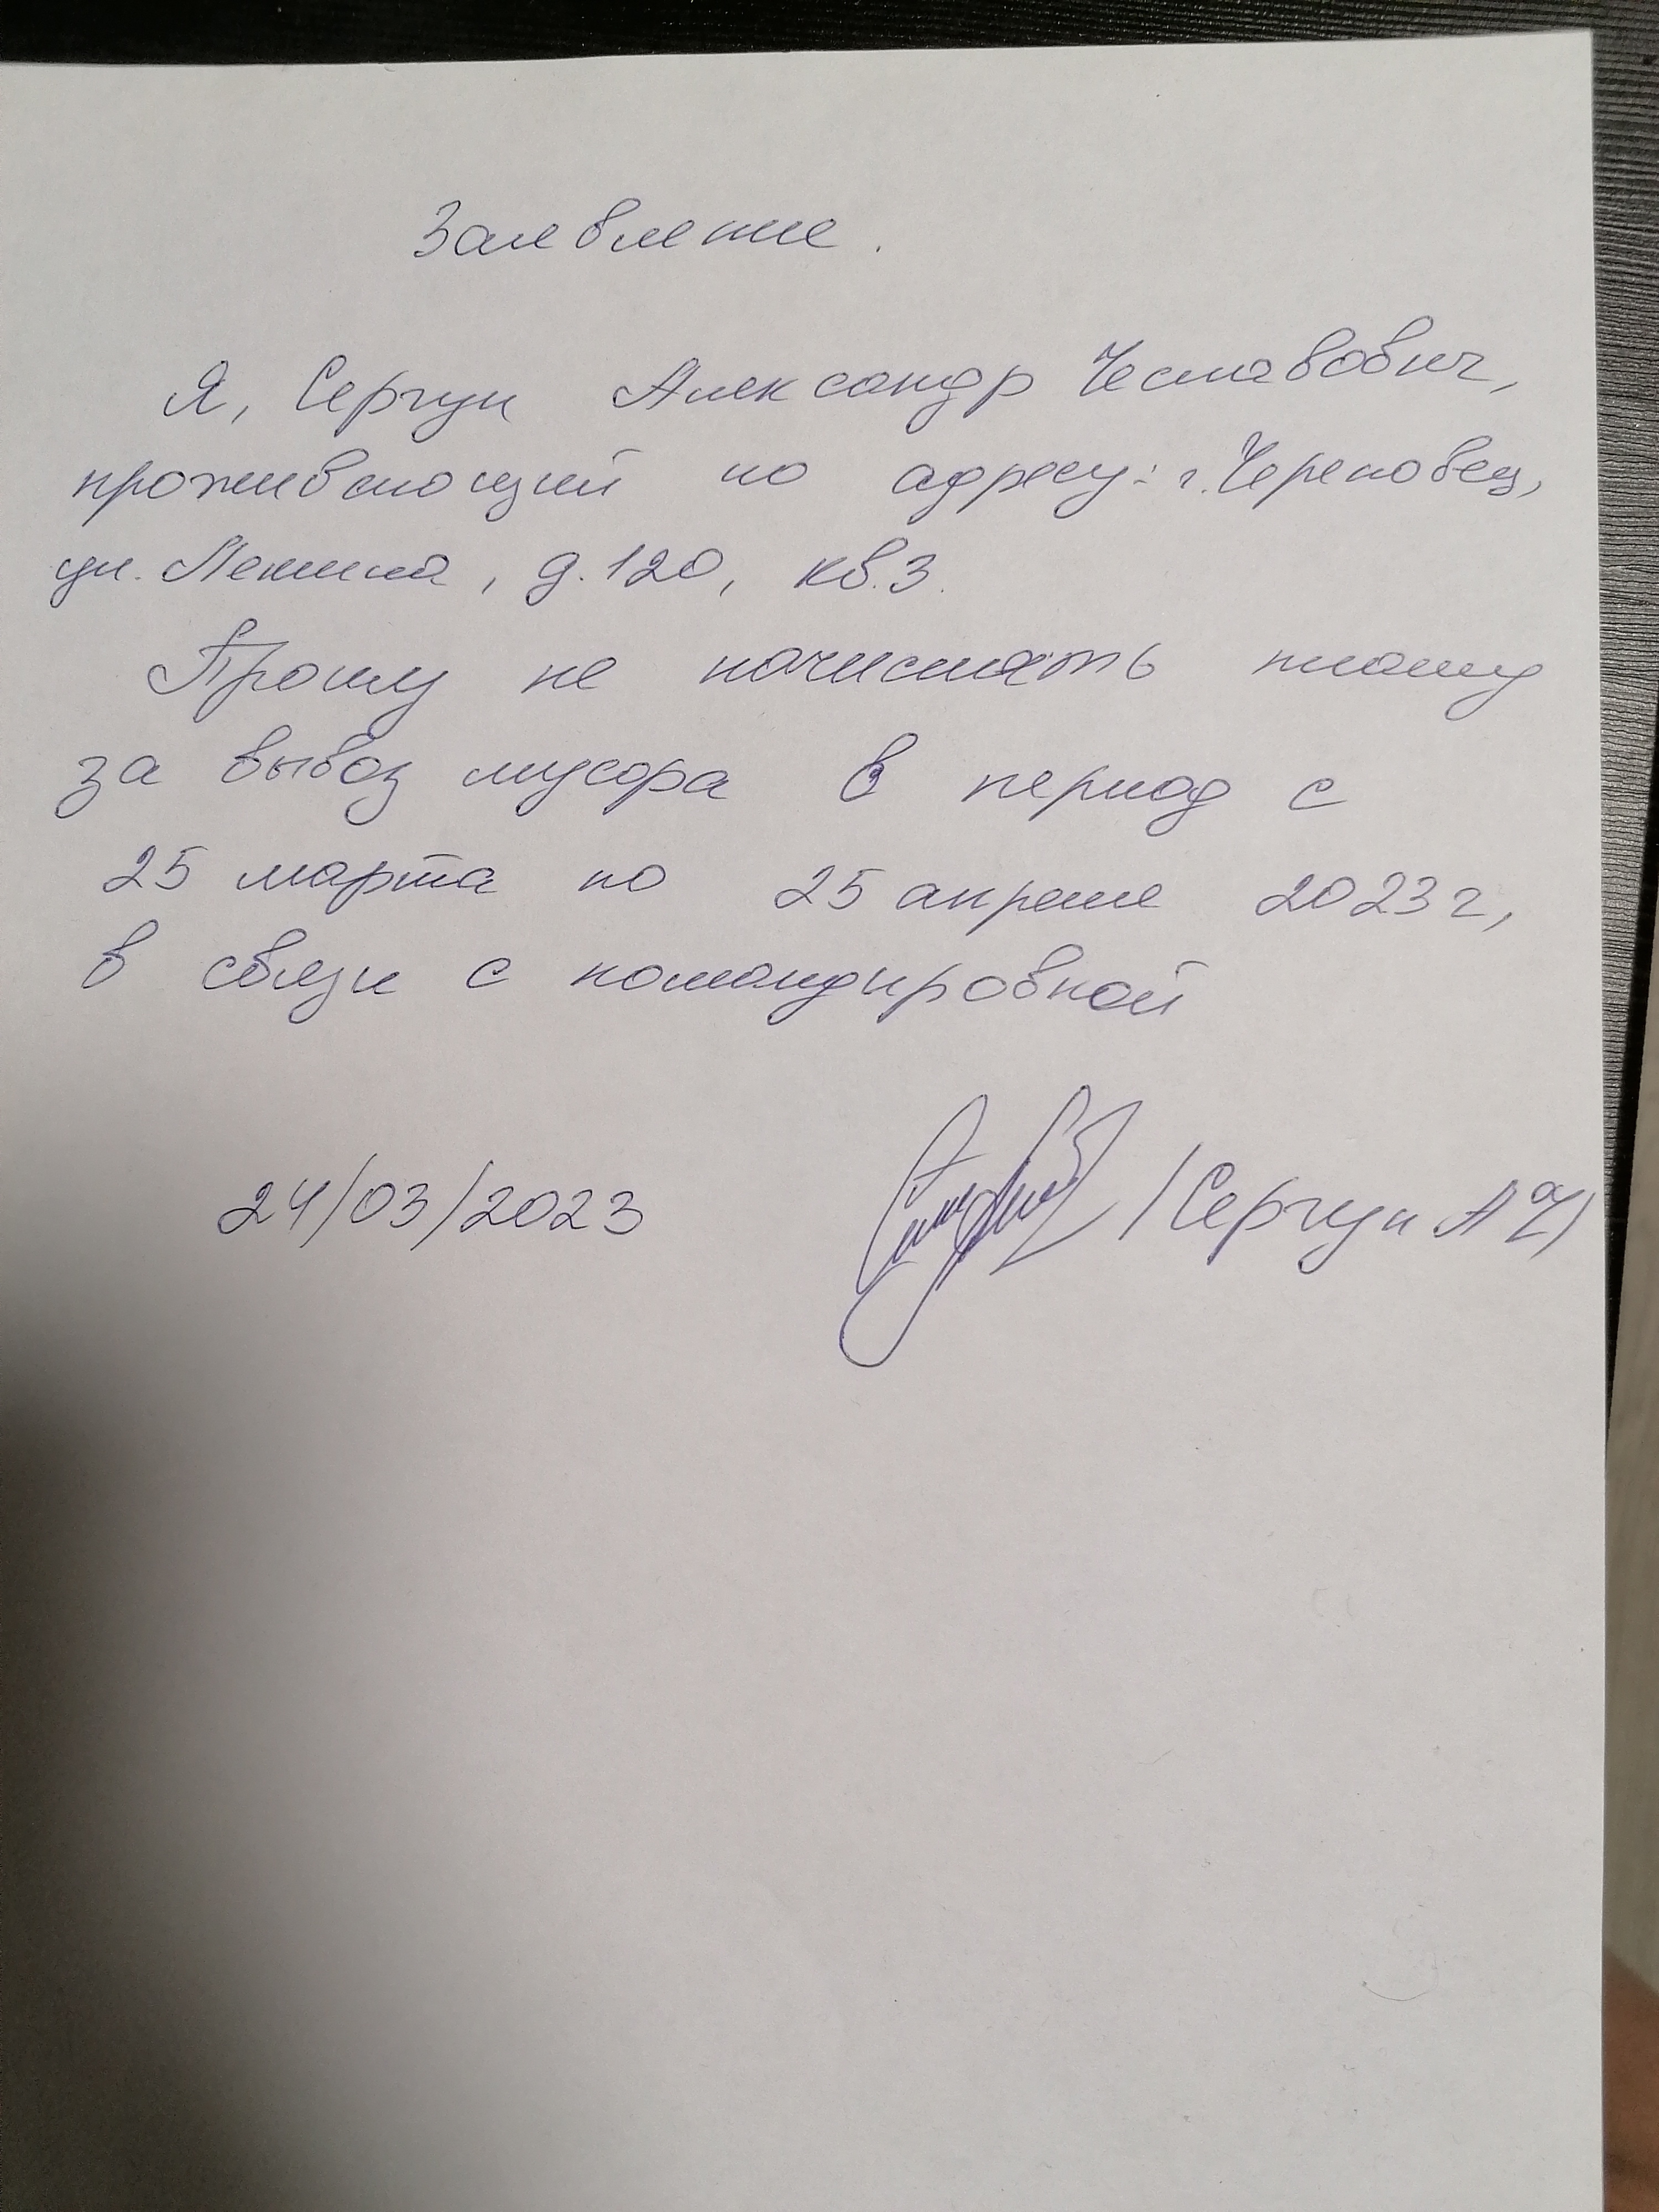 Заявление.
Я, Сергун Александр Чеславович,
проживающий по адресу: г. Череповец,
ул. Ленина, д. 120, кв. 3.
Прошу не начислять плату
за вывоз мусора в период с
25 марта по 25 апреля 2023 г,
в связи с командировкой
24/03/2023 /Сергун А Ч/